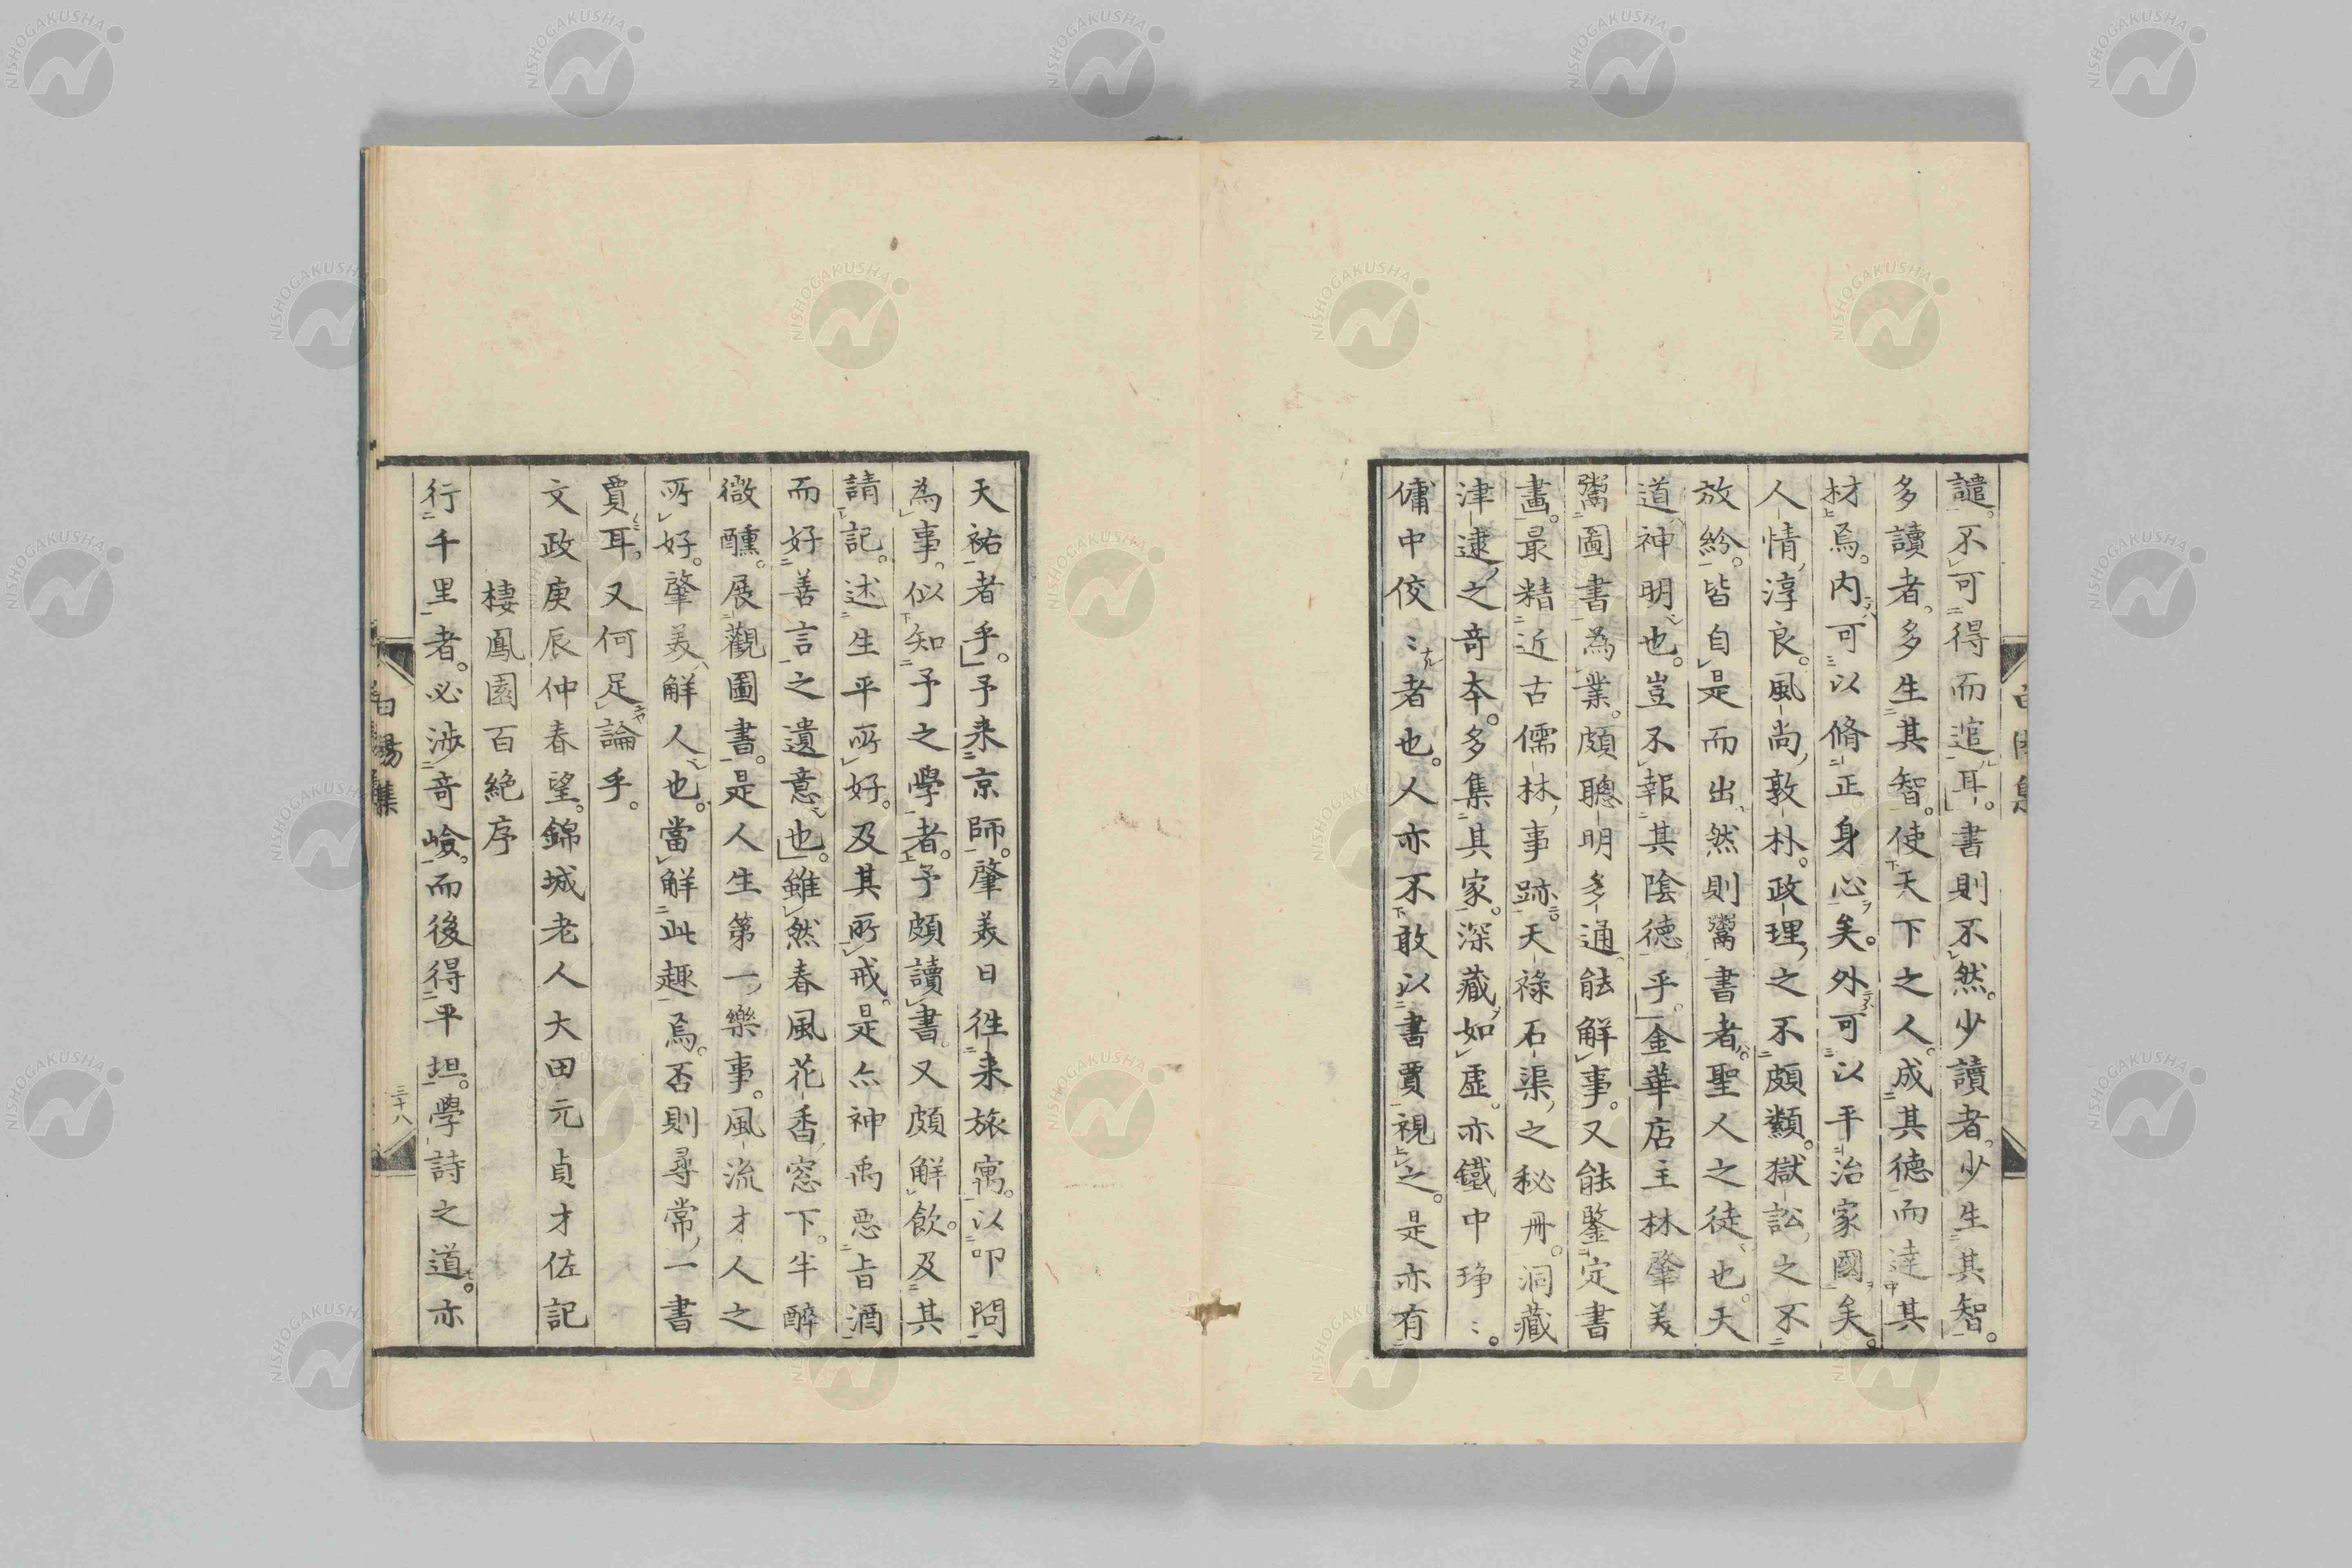 譴。不可得而逭耳。書則不然。少讀者。少生其智。
多讀者。多生其智。使天下之人。成其德而達其
材焉。内可以脩正身心矣。外可以平治家國矣。
人情淳良。風尚敦朴。政理之不頗纇。獄訟之不
放紛。皆自是而出。然則鬻書者。聖人之徒也。天
道神明也。豈不報其陰德乎。金華店主林肇美
鬻圖書為業。頗聰明多通。能解事。又能鑒定書
畫。最精近古儒林事跡。天祿石渠之秘冊。洞藏
津逮之奇本。多集其家。深藏如虛。亦鐵中琤〻。
傭中佼〻者也。人亦不敢以書賈視之。是亦有
天祐者乎。予来京師。肇美日徃来旅寓。以叩問
為事。似知予之學者。予頗讀書。又頗解飲。及其
請記。述生平所好。及其所戒。是亦神禹惡旨酒
而好善言之遺意也。雖然春風花香。窓下。半醉
微醺。展觀圖書。是人生第一樂事。風流才人之
所好。肇美解人也。當解此趣焉。否則尋常一書
賈耳。又何足論乎。
文政庚辰仲春望。錦城老人大田元貞才佐記
棲鳳園百絶序
行千里者。必渉奇嶮。而後得平坦。學詩之道。亦
三十八